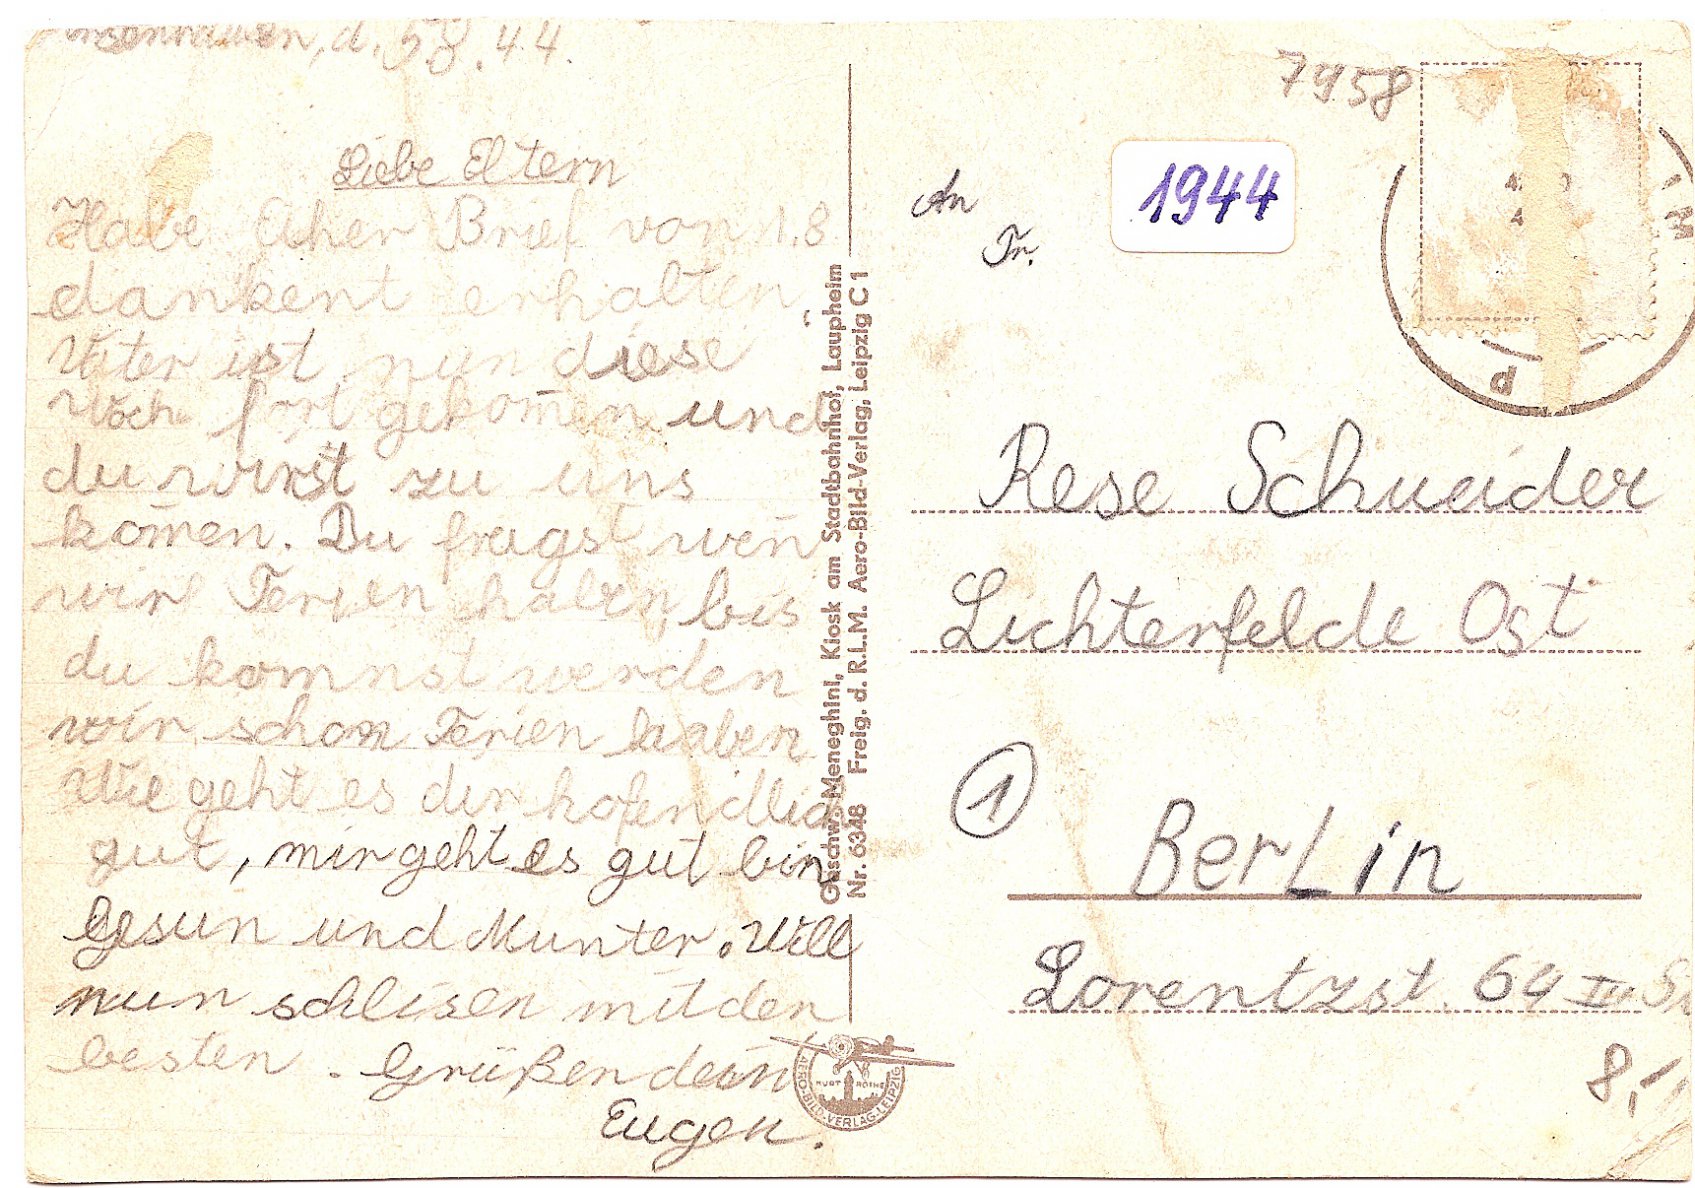 d. 5.8.44.
Liebe Eltern
Habe Euer Brief vom 1.8
dankent erhalten.
Vater ist nun diese
Woch fort gekom̄en und
du wirst zu uns
kom̄en. Du fragst wen̄
wir Ferien haben, bis
du komnst werden
wir schon Ferien haben
Wie geht es dir hofendlich
gut, mir geht es gut bin
Gesun und Munter. Will
nun schlisen mit den
besten. Grüßen dein
Eugen.
Geschw. Meneghini, Kiosk am Stadtbahnhof, Laupheim
Nr. 6348 Freig. d. R.L.M. Aero-Bild-Verlag, Leipzig C 1
AERO-BILD-VERLAG-LEIPZIG
KURT ROTHE
7958
1944
An
Fr.
d
Rese Schneider
Lichterfelde Ost
1
BerLin
Lorentzst. 64 III
8,-